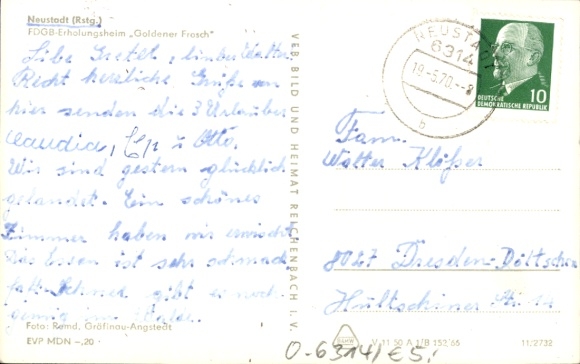 Neustadt (Rstg.)
FDGB-Erholungsheim „Goldener Frosch"
Liebe Gretel, lieber Walter
Recht herzliche Grüße von
hier senden die 3 Urlauber
Claudia, u. Otto.
Wir sind gestern glücklich
gelandet. Ein schönes
Zimmer haben wir erwischt
Das Essen ist sehr schmack
haft. Schnee gibt es noch
genug im
Foto: Remd, Gräfinau-Angstedt
EVP MDN –,20
VEB BILD UND HEIMAT REICHENBACH I. V.
NEUSTADT
6314
19.-3.70.-8
b
DEUTSCHE
DEMOKRATISCHE REPUBLIK
10
Fam.
Walter Klößer
8027 Dresden-Döltschen
Hultschiner Str. 11
V 11 50 A 1/B 152/66
11/2732
0-6314/€5,-